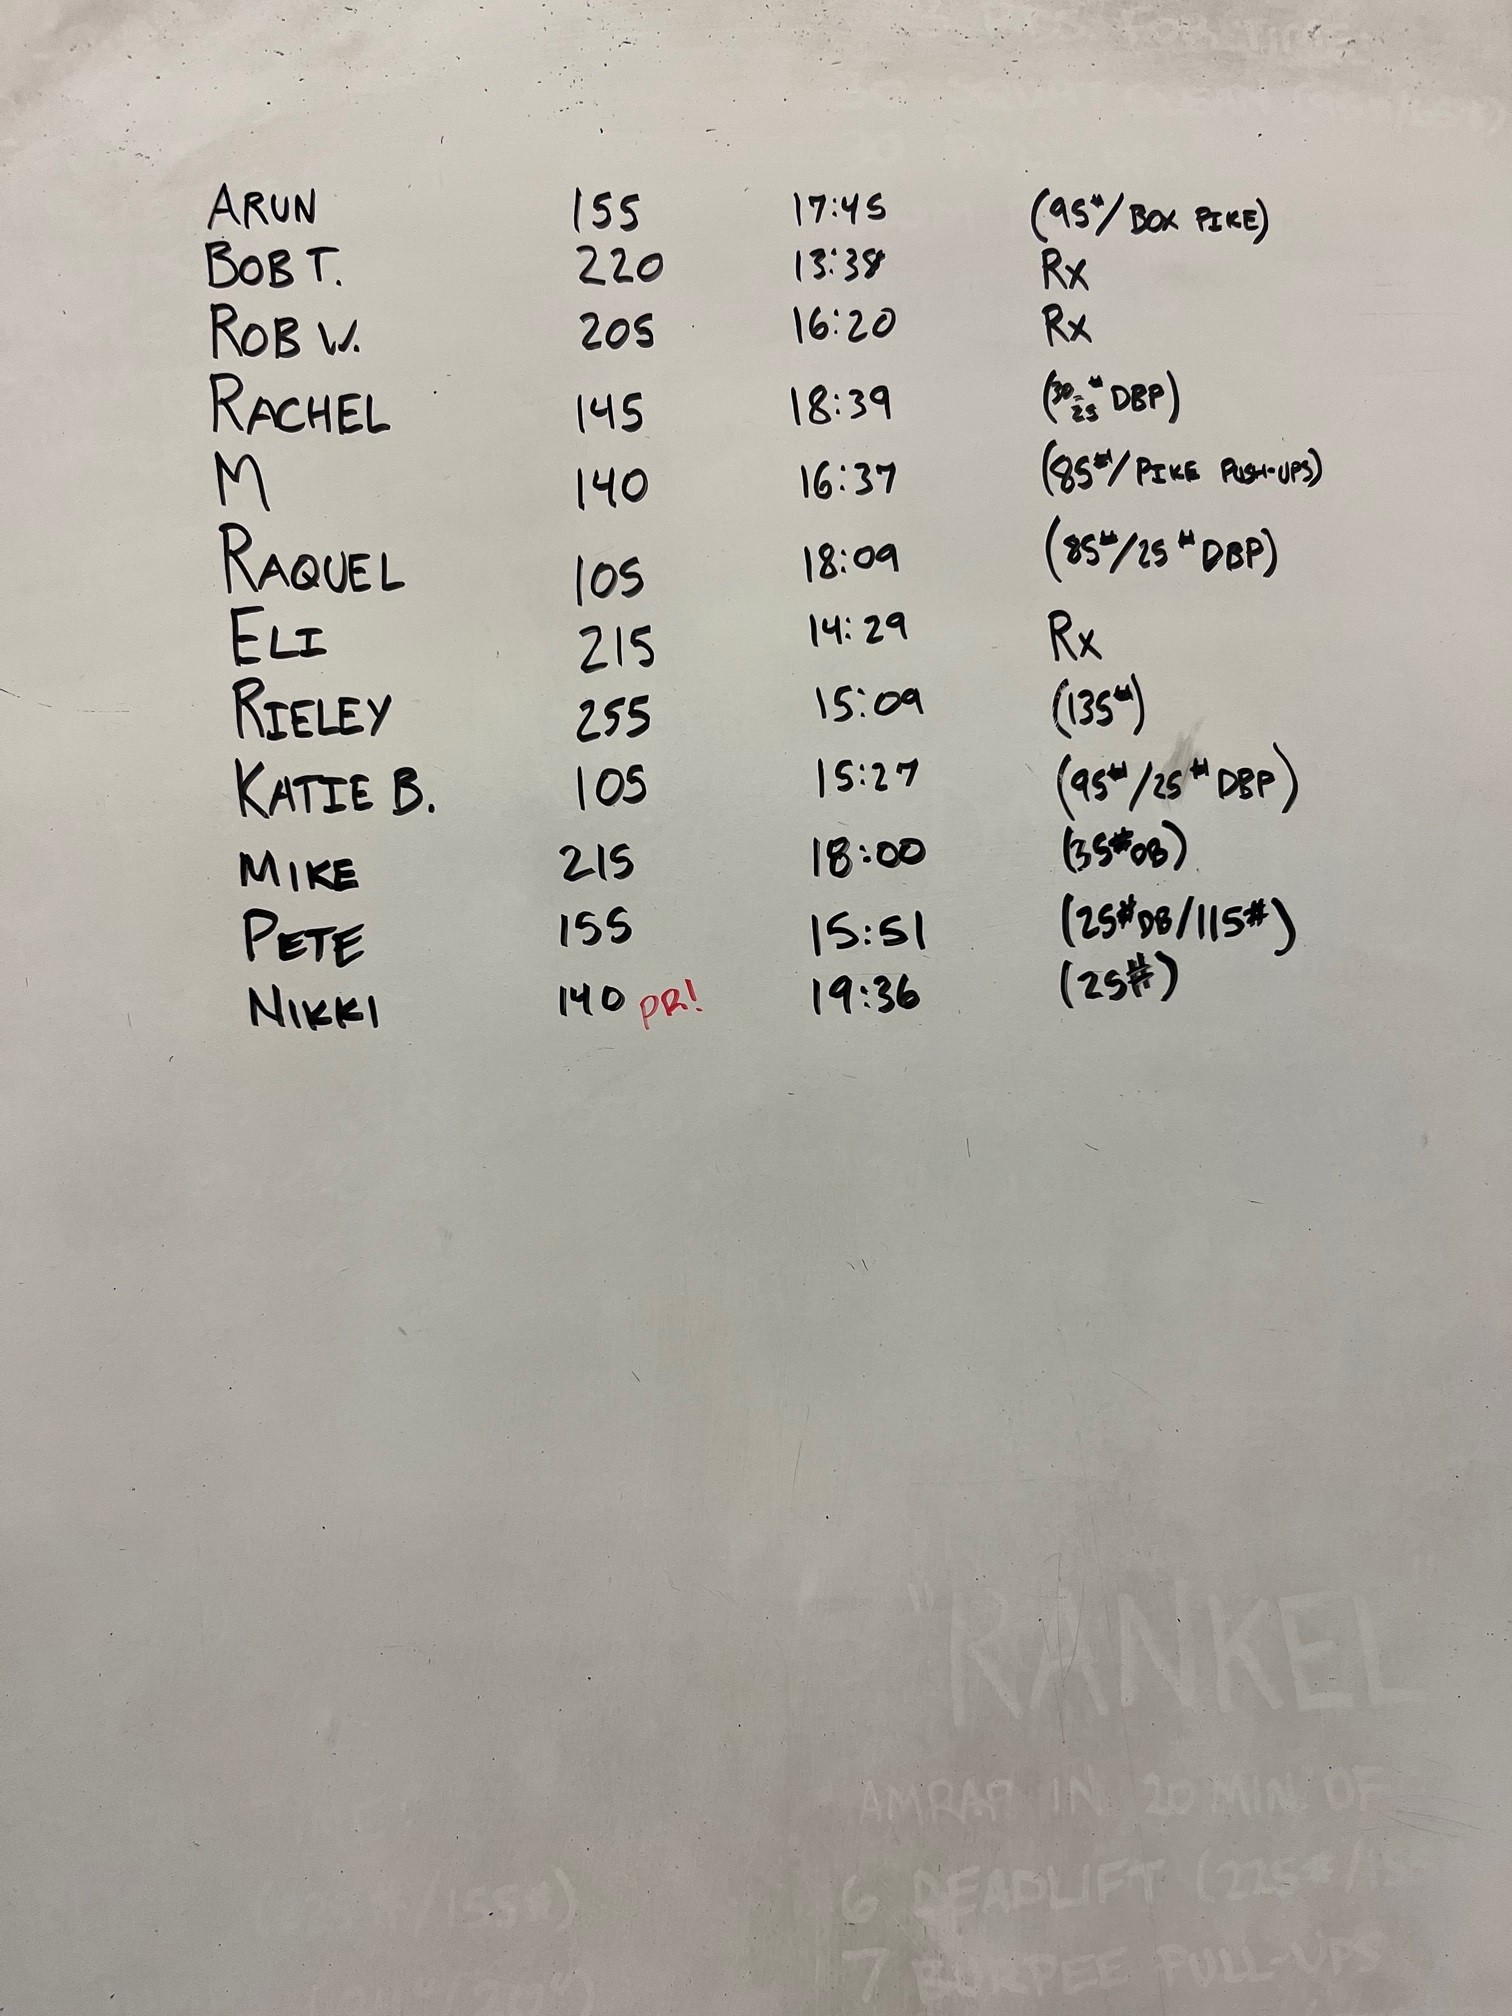 FOR TIME:
ARUN 155 17:45 (95#/BOX PIKE)
BOB T. 220 13:38 Rx
ROB W. 205 16:20 Rx
RACHEL 145 18:39 (30-25# DBP)
M 140 16:37 (85#/PIKE PUSH-UPS)
RAQUEL 105 18:09 (85#/25# DBP)
ELI 215 14:29 Rx
RIELEY 255 15:09 (135#)
KATIE B. 105 15:27 (95#/25# DBP)
MIKE 215 18:00 (35#DB)
PETE 155 15:51 (25#DB/115#)
NIKKI 140 PR! 19:36 (25#)
"RANKEL
AMRAP IN 20 MIN. OF
(225#/155#) 6 DEADLIFT (225#/15
7 BURPEE PULL-UPS